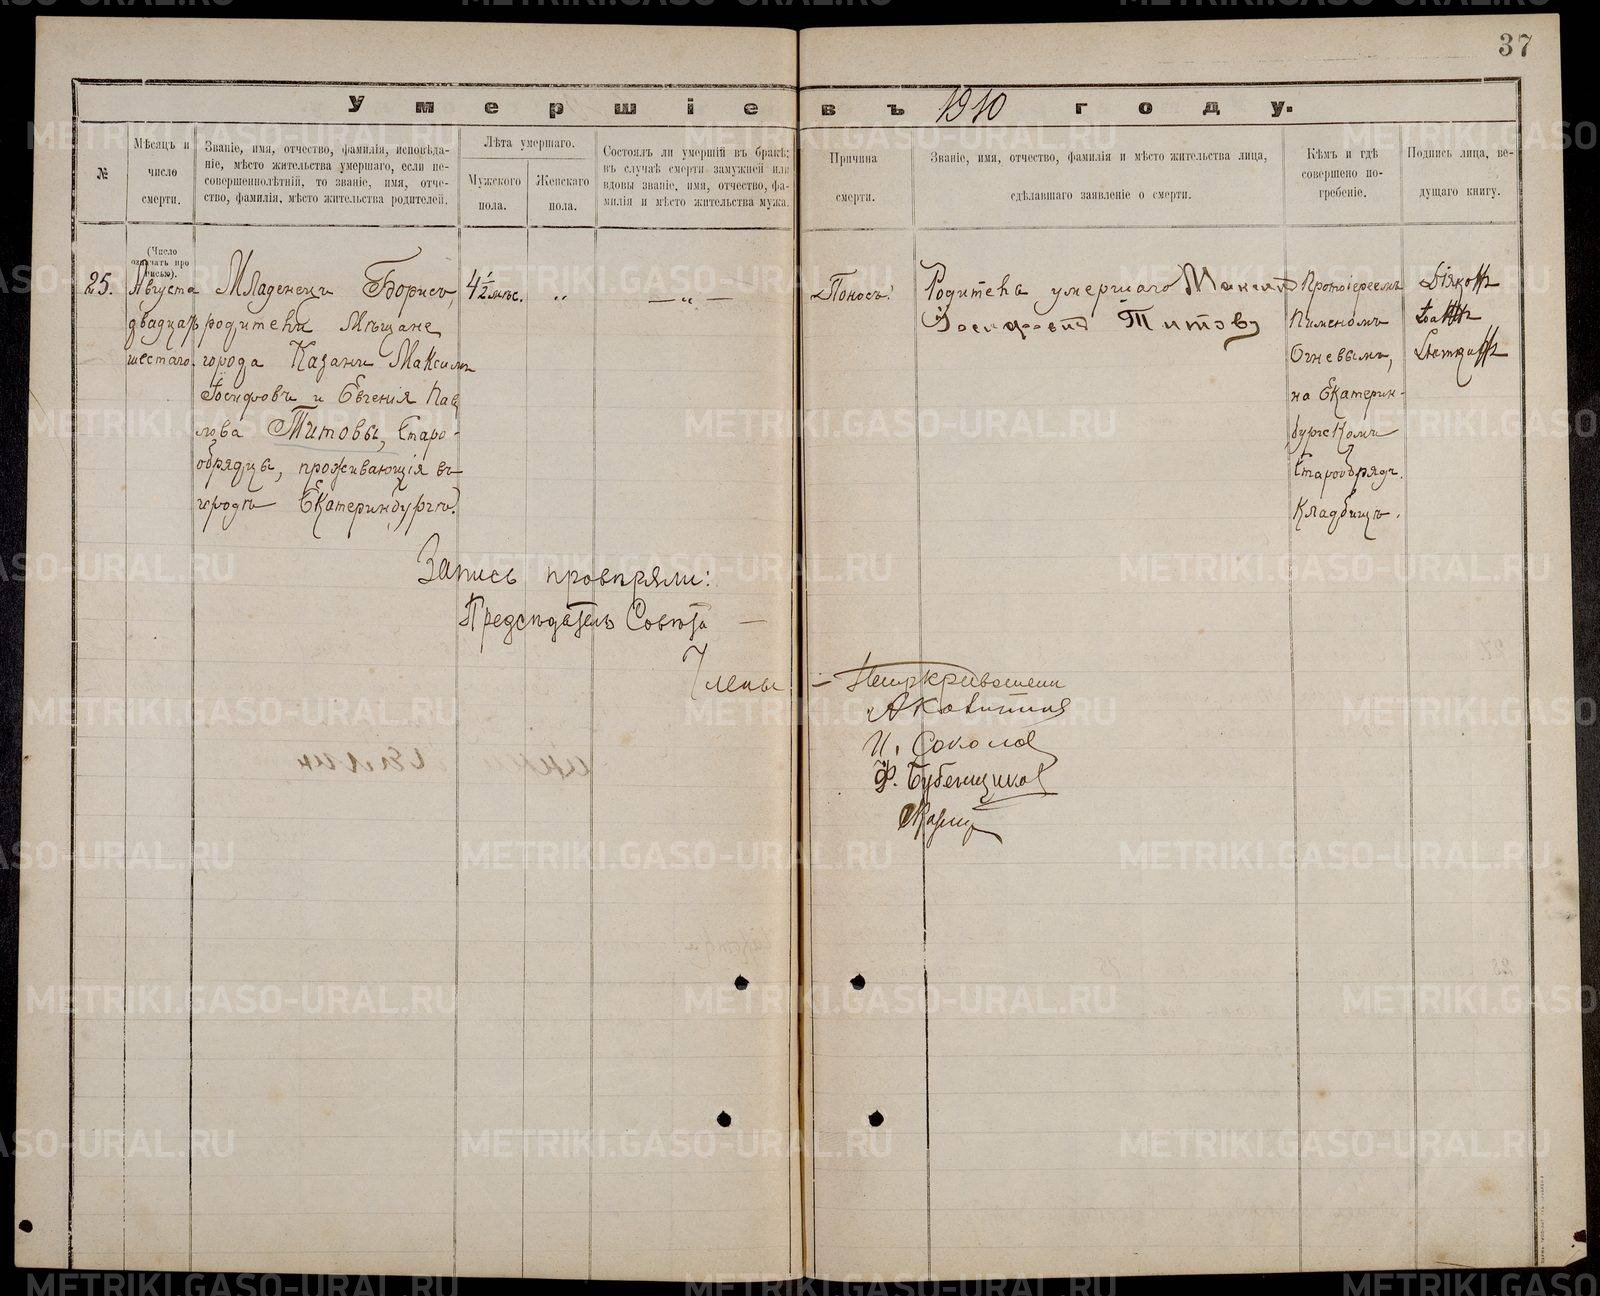 37
Умершіе въ 1910 году.
№
Мѣсяцъ и
число
смерти.
Званіе, имя, отчество, фамилія, исповѣда-
ніе, мѣсто жительства умершаго, если не-
совершеннолѣтній, то званіе, имя, отче-
ство, фамилія, мѣсто жительства родителей.
Лѣта умершаго.
Мужского
пола.
Женскаго
пола.
Состоялъ ли умершій въ бракѣ;
въ случаѣ смерти замужней или
вдовы званіе, имя, отчество, фа-
милія и мѣсто жительства мужа.
Причина
смерти.
Званіе, имя, отчество, фамилія и мѣсто жительства лица,
сдѣлавшаго заявленіе о смерти.
Кѣмъ и гдѣ
совершено по-
гребеніе.
Подпись лица, ве-
дущаго книгу.
25.
(Число
означать про
писью).
Августа
двадцать
шестаго.
Младенецъ Борисъ,
родители Мѣщане
города Казани Максимъ
Іосифовъ и Евгенія Пав
лова Титовы, Старо-
обрядцы, проживающія въ
городѣ Екатеринбургѣ.
4½ мѣс.
„
— „ —
Поносъ.
Родитель умершаго Максимъ
Іосифовъ Титовъ
Протоіереемъ
Пименомъ
Огневымъ,
на Екатерин-
бургскомъ
Старообряд.
Кладбищѣ.
Запись провѣряли:
Предсѣдатель Совѣта —
Члены —
И. Соколов
Ф. Бубенщиков
METRIKI.GASO-URAL.RU